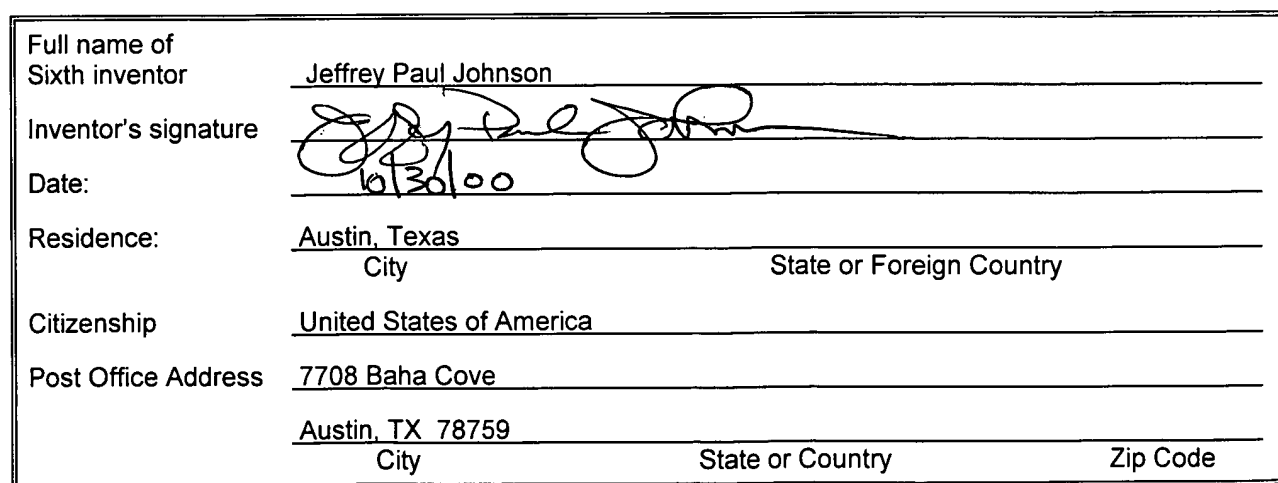 Full name of
Sixth inventor Jeffrey Paul Johnson
Inventor's signature Jeffrey Paul Johnson
Date: 10/30/00
Residence: Austin, Texas
City State or Foreign Country
Citizenship United States of America
Post Office Address 7708 Baha Cove
Austin, TX 78759
City State or Country Zip Code